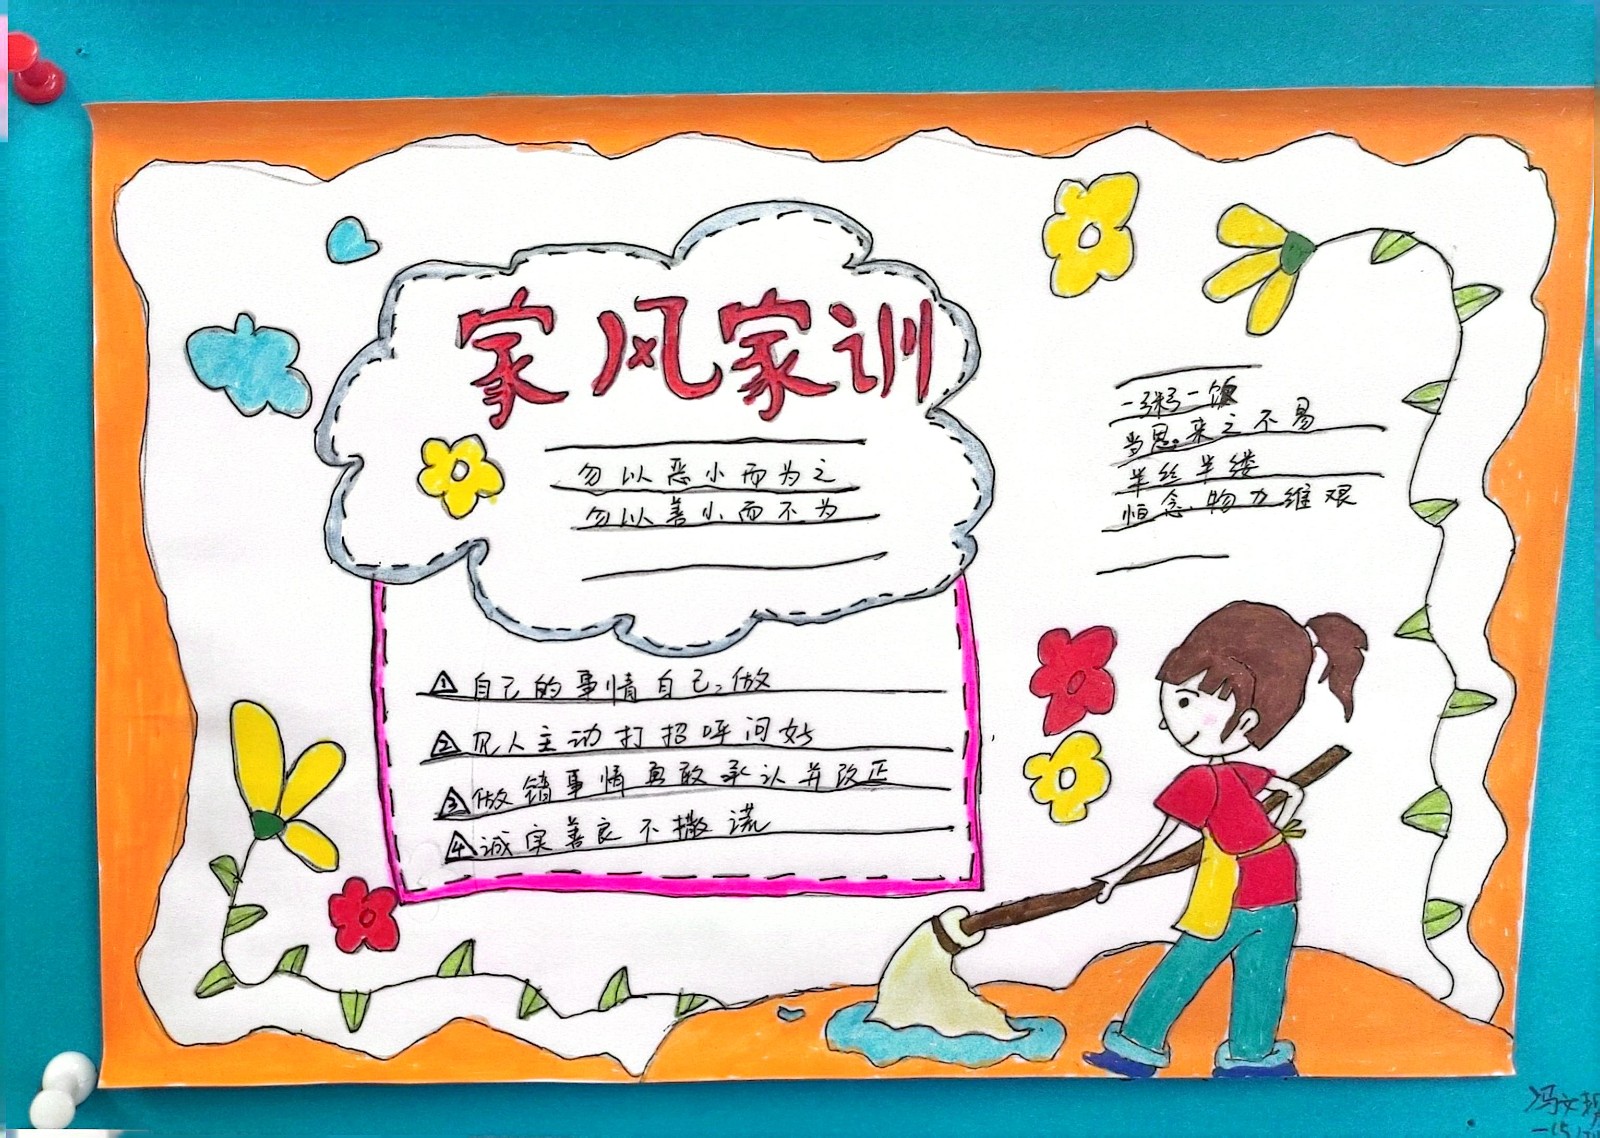 家风家训
勿以恶小而为之
勿以善小而不为
一粥一饭
当思来之不易
半丝半缕
恒念物力维艰
1 自己的事情自己做
2 见人主动打招呼问好
3 做错事情勇敢承认并改正
4 诚实善良不撒谎
冯文